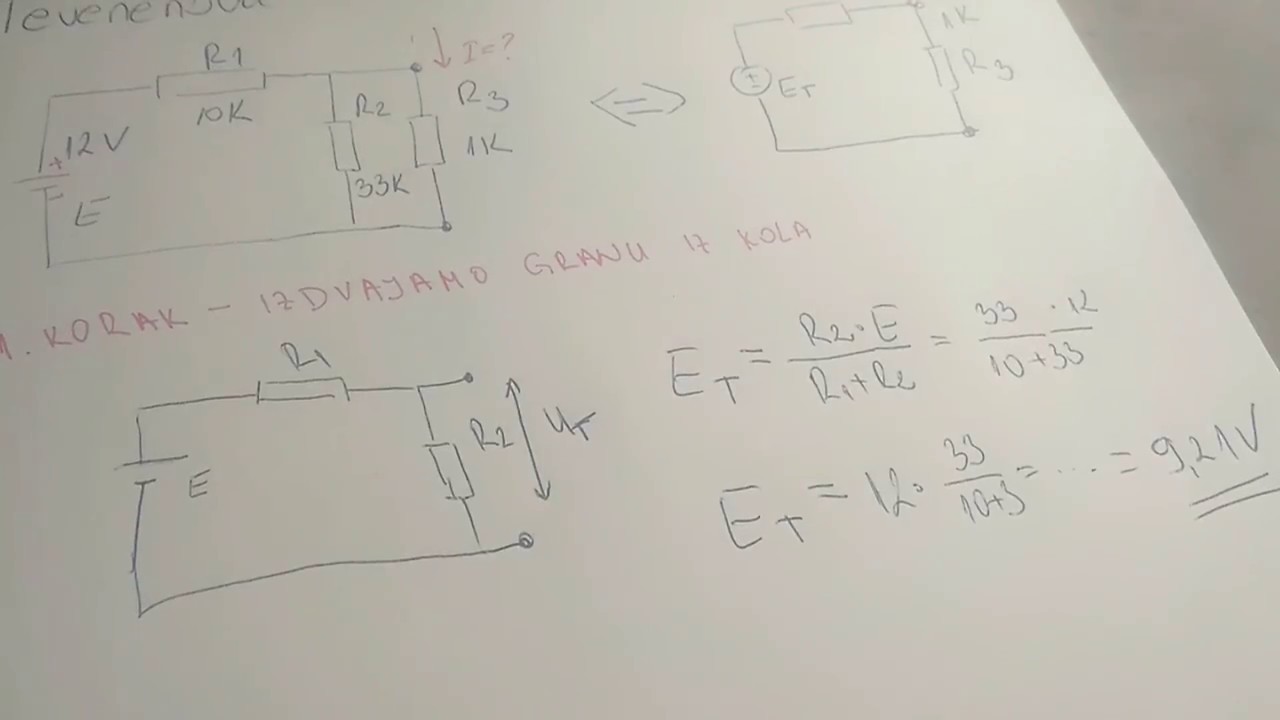 R1
10K
12V
+
E
R2
33K
I=?
R3
1K
⇔
±
ET
1K
R3
1. KORAK – IZDVAJAMO GRANU IZ KOLA
R1
E
R2
UT
ET = R2·E / R1+R2 = 33·12 / 10+33
ET = 12· 33 / 10+3 = ... = 9,21V